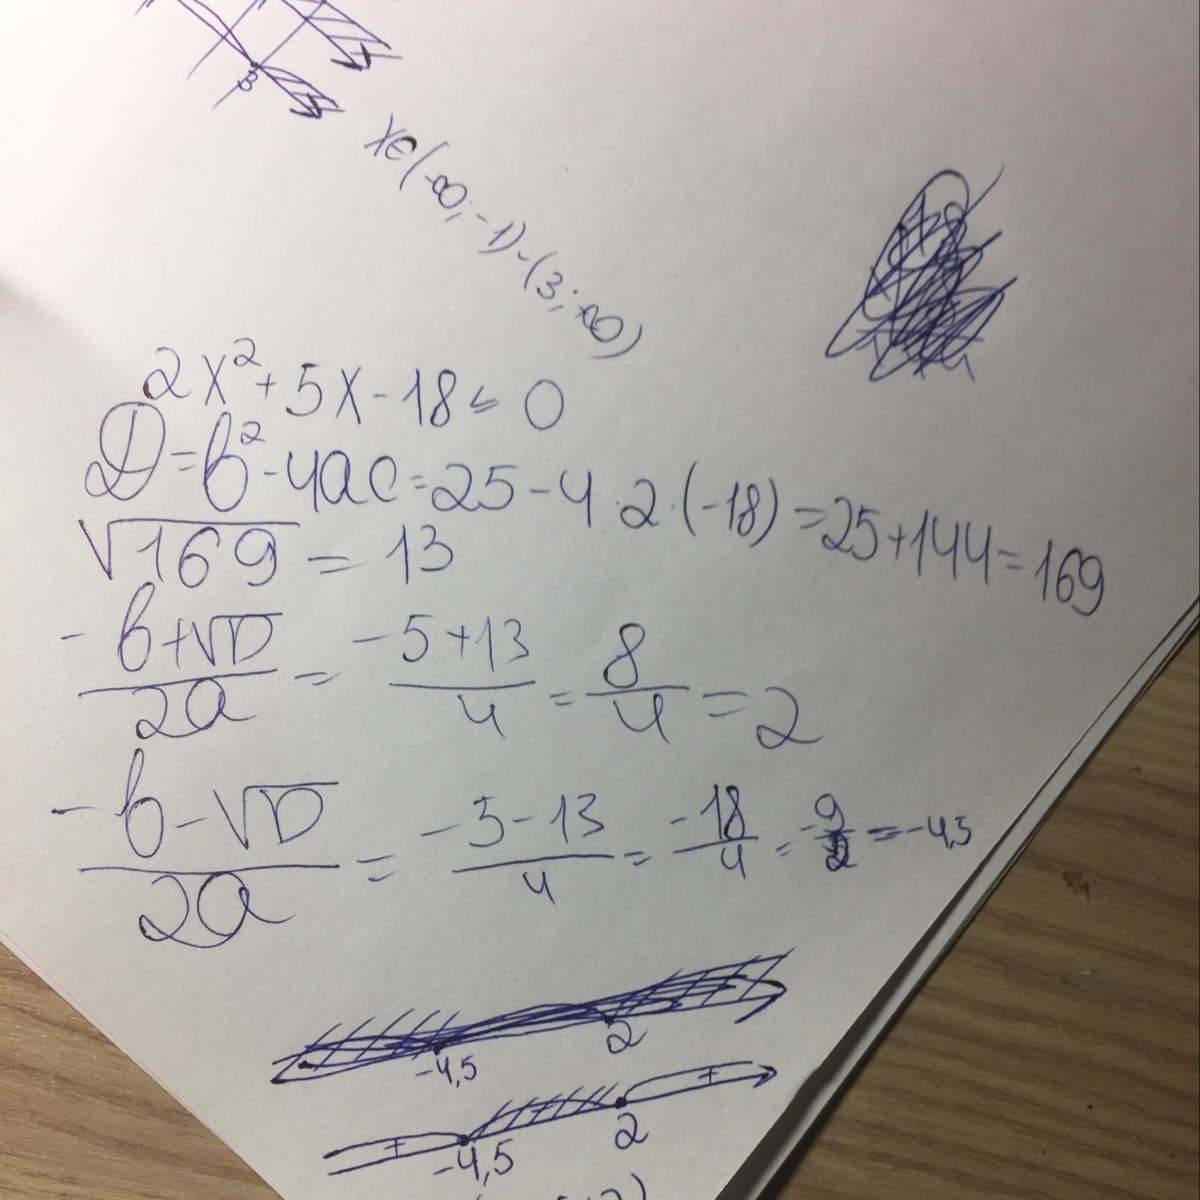 3
x∈(-∞; -1)∪(3; +∞)
2x²+5x-18≤0
D=b²-4ac=25-4·2·(-18)=25+144=169
√169=13
(-b+√D)/2a = (-5+13)/4 = 8/4 = 2
(-b-√D)/2a = (-5-13)/4 = -18/4 = -9/2 = -4,5
-4,5 2
+ - +
-4,5 2